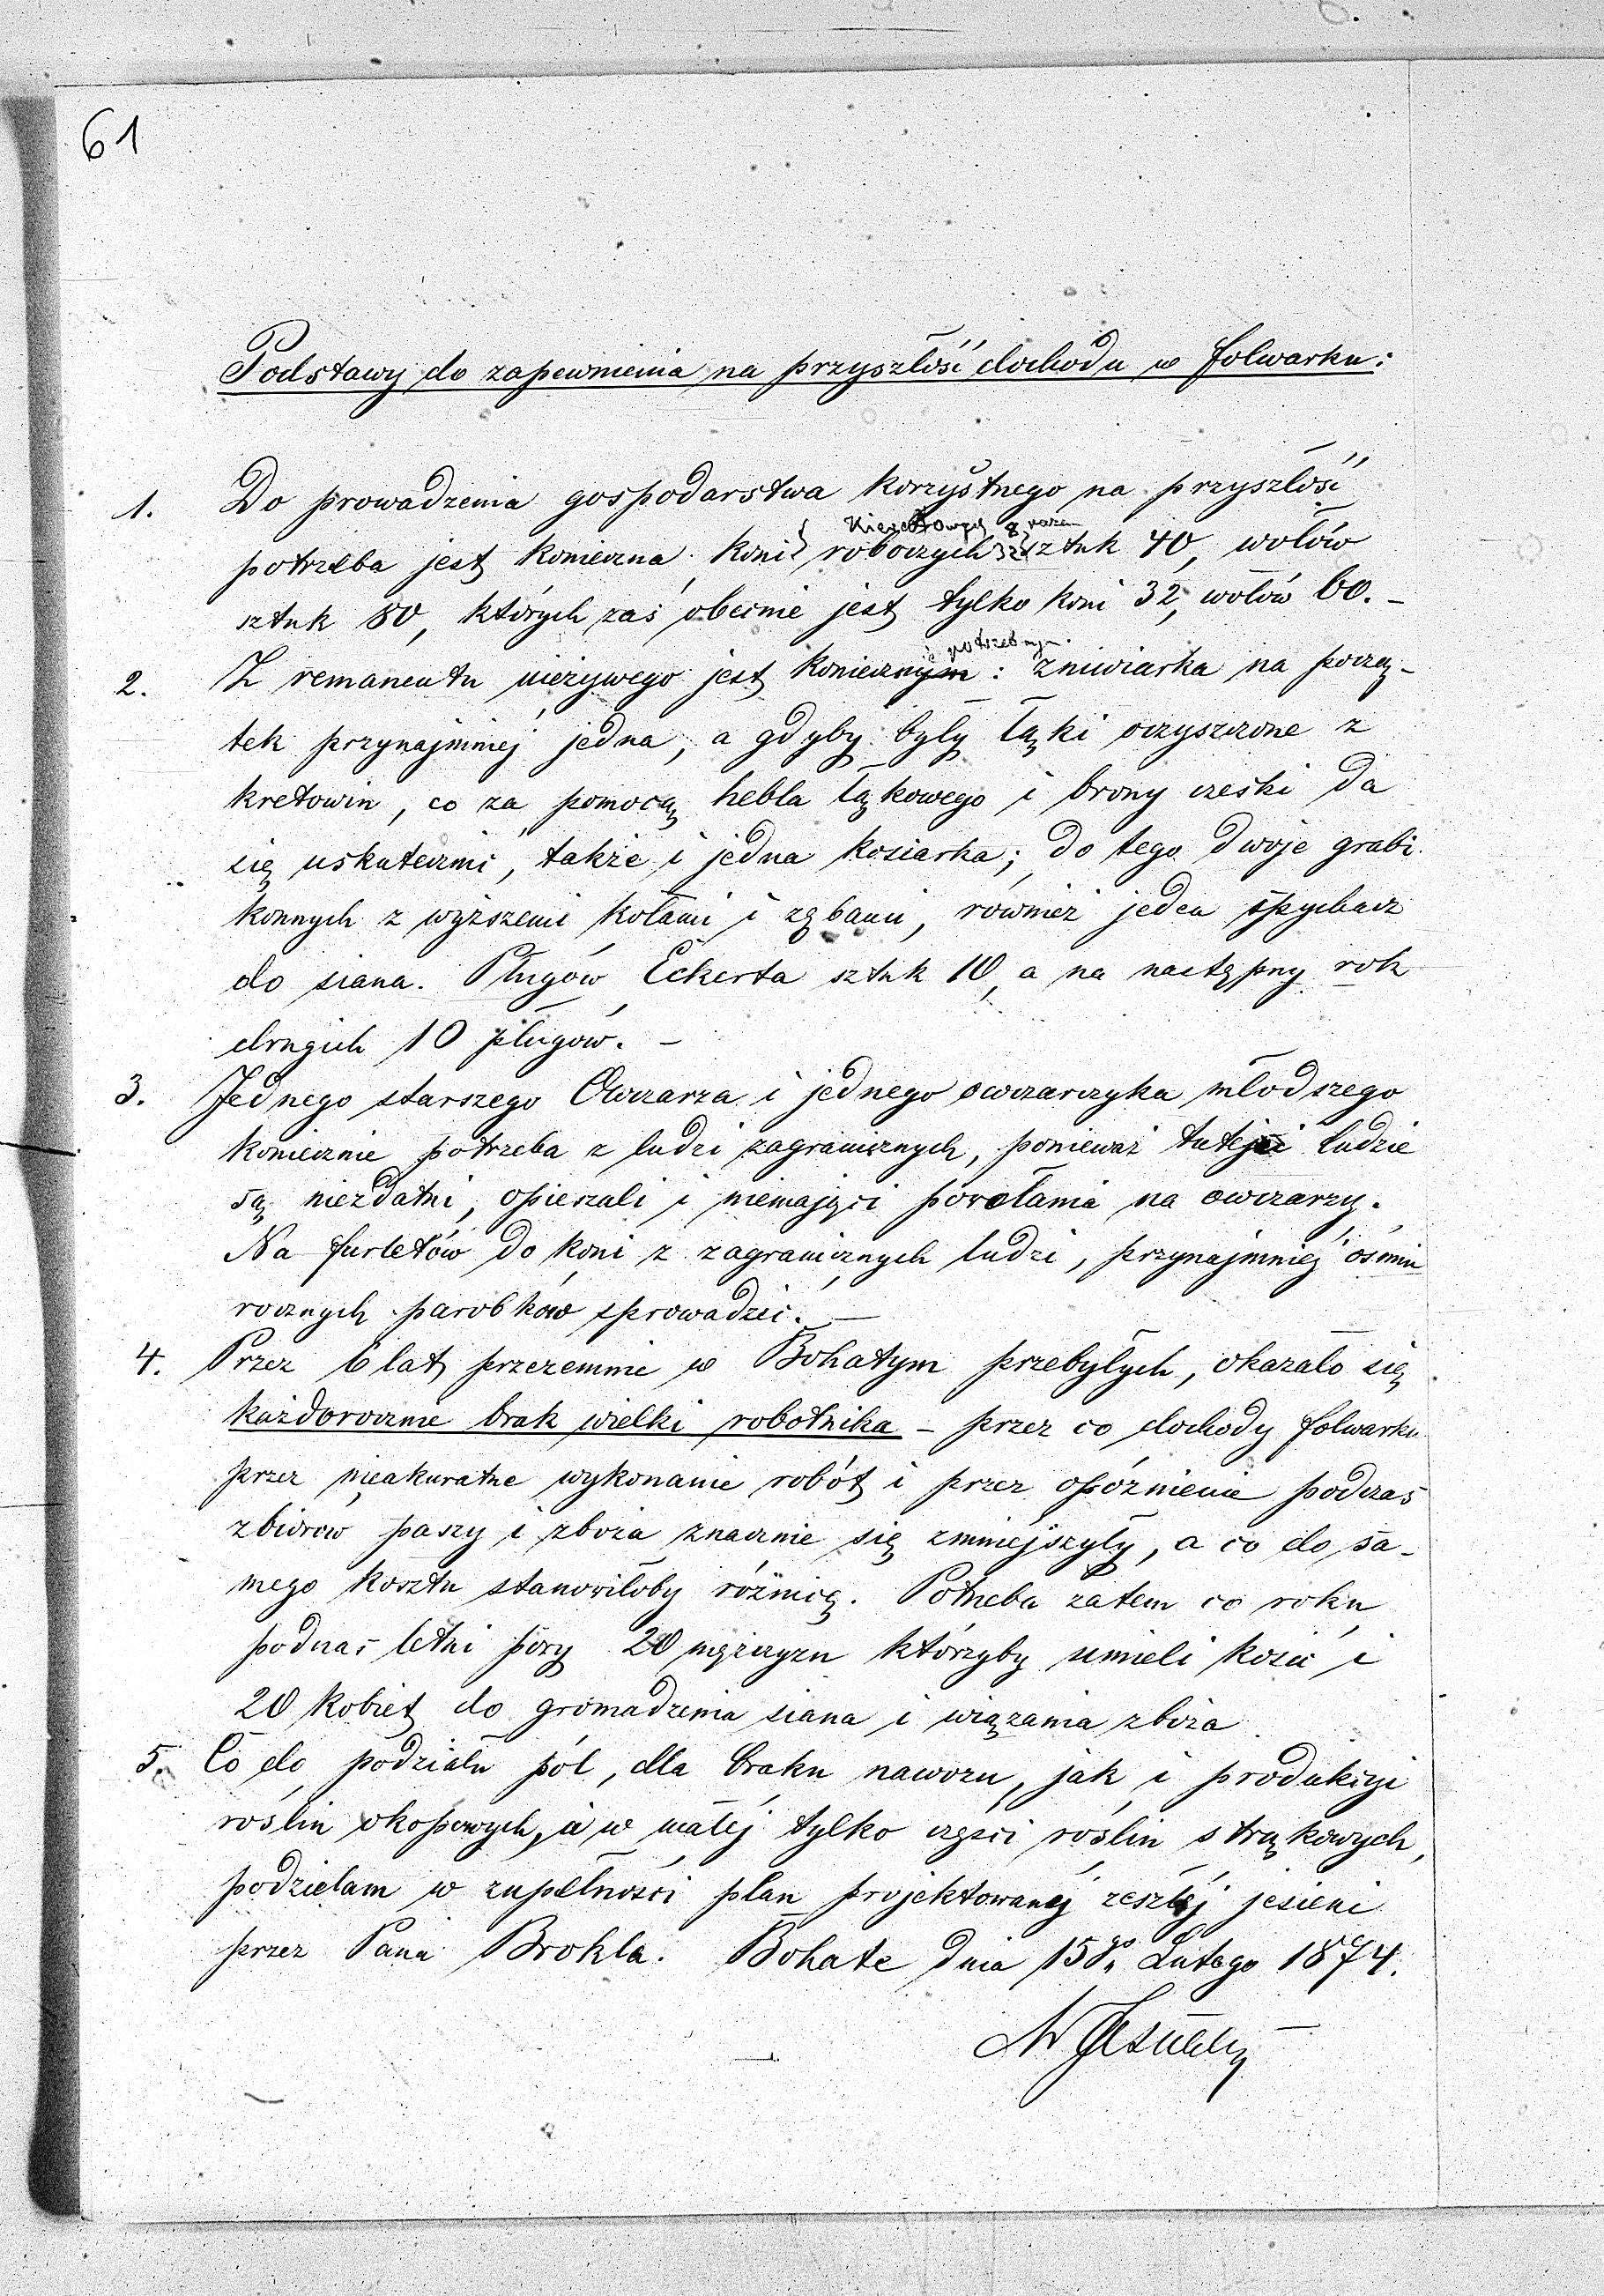 61
Podstawy do zapewnienia na przyszłość dochodu w folwarku:
1. Do prowadzenia gospodarstwa korzystnego na przyszłość
8 razem
potrzeba jest konieczna koni roboczych 32 sztuk 40, wołów
sztuk 80, których zaś obecnie jest tylko koni 32, wołów 60. –
potrzebnym.
2. Z remanentu nieżywego jest koniecznym: żniwiarka na począ-
tek przynajmniej jedna, a gdyby były łąki oczyszczone z
kretowin, co za pomocą hebla łąkowego i brony czeski da
się uskutecznić, także i jedna kosiarka; do tego dwoje grabi
konnych z wyższemi kołami i zębami, również jeden spychacz
do siana. Pługów Eckerta sztuk 10, a na następny rok
drugich 10 pługów. –
3. Jednego starszego Owczarza i jednego owczarczyka młodszego
koniecznie potrzeba z ludzi zagranicznych, ponieważ tutejsi ludzie
są niezdatni, opieszali i niemający powołania na owczarzy.
Na furletów do koni z zagranicznych ludzi, przynajmniej ośmiu
rocznych parobków sprowadzić. –
4. Przez 6 lat przezemnie w Bohatym przebyłych, okazało się
każdorocznie brak wielki robotnika – przez co dochody folwarku
przez nieakuratne wykonanie robót i przez opóźnienie podczas
zbiorów paszy i zboża znacznie się zmniejszyły, a co do sa-
mego kosztu stanowiłoby różnicę. Potrzeba zatem co roku
podczas letni pory 20 mężczyzn którzyby umieli kosić i
20 kobiet do gromadzenia siana i wiązania zboża
5. Co do podziału pól, dla braku nawozu, jak i produkcyi
roślin okopowych, a w małéj tylko części roślin strąkowych,
podzielam w zupełności plan projektowanéj zeszłéj jesieni
przez Pana Brokla. Bohate dnia 15go Lutego 1874.